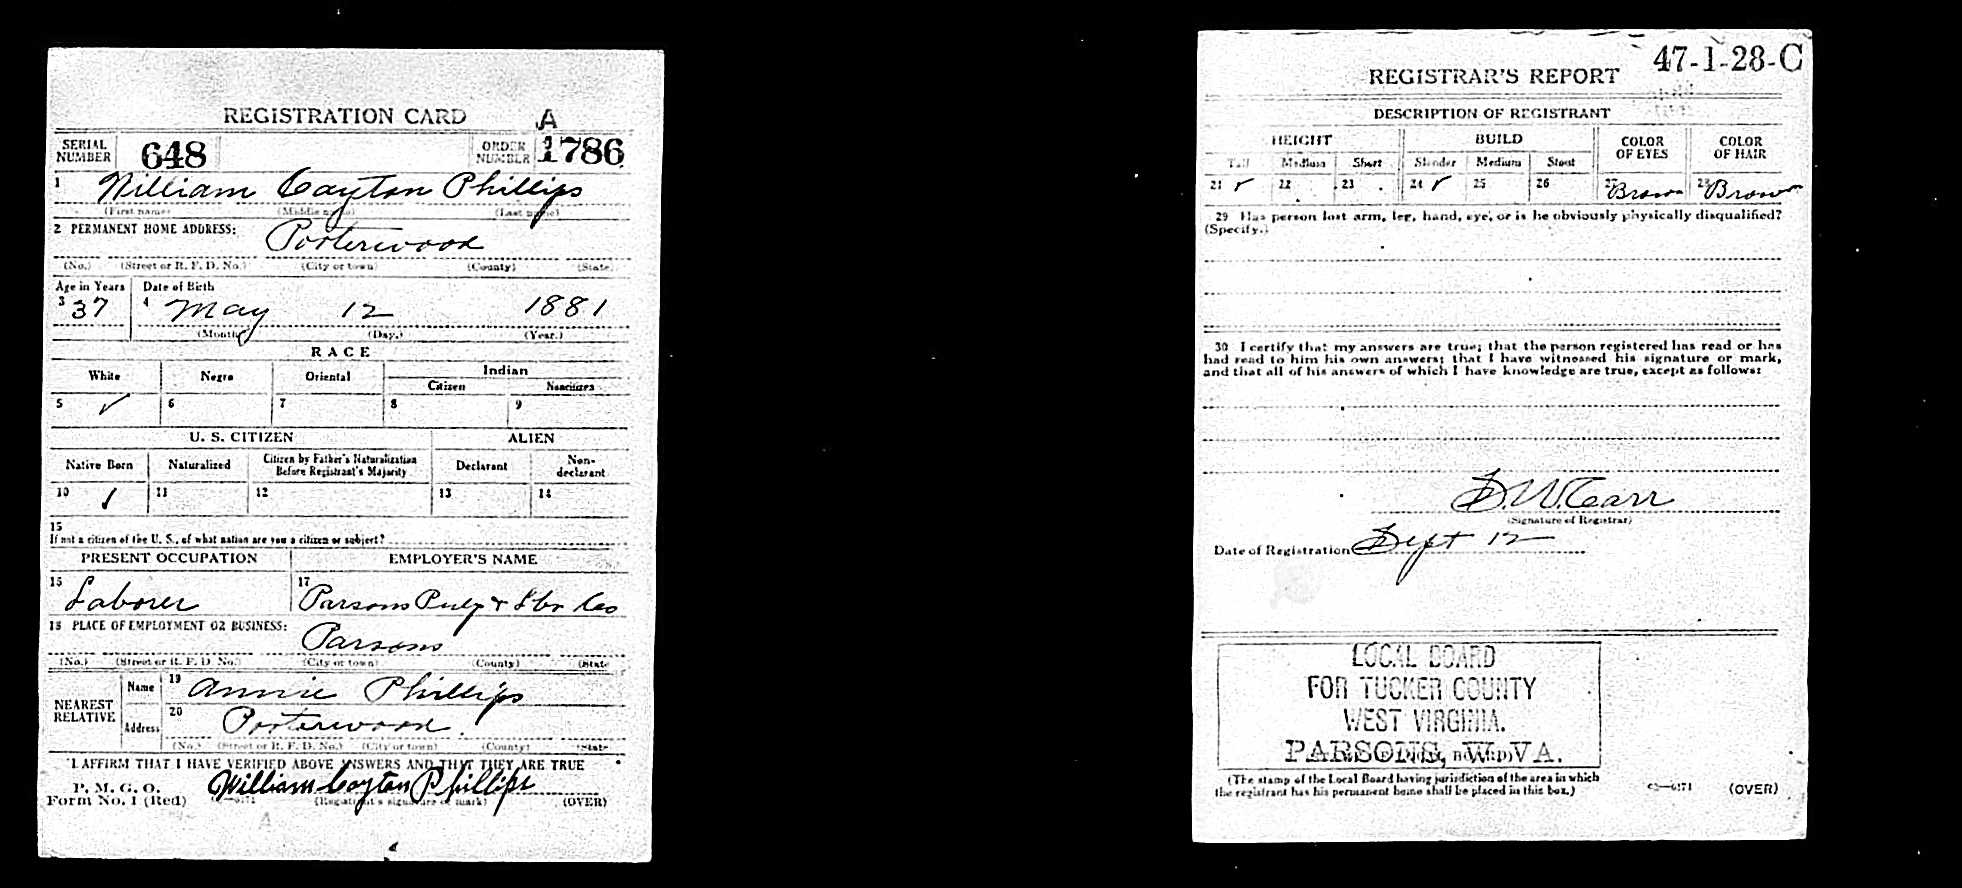 REGISTRATION CARD A
SERIAL NUMBER 648 ORDER NUMBER 1786
1 William Cayton Phillips
(First name) (Middle name) (Last name)
2 PERMANENT HOME ADDRESS: Porterwood
(No.) (Street or R. F. D. No.) (City or town) (County) (State)
Age in Years Date of Birth
3 37 4 May 12 1881
(Month) (Day.) (Year.)
RACE
White Negro Oriental Indian
Citizen Noncitizen
5 ✓ 6 7 8 9
U. S. CITIZEN ALIEN
Native Born Naturalized Citizen by Father's Naturalization Before Registrant's Majority Declarant Non-declarant
10 ✓ 11 12 13 14
15
If not a citizen of the U. S., of what nation are you a citizen or subject?
PRESENT OCCUPATION EMPLOYER'S NAME
16 Laborer 17 Parsons Pulp & Lbr Co
18 PLACE OF EMPLOYMENT OR BUSINESS: Parsons
(No.) (Street or R. F. D. No.) (City or town) (County) (State
NEAREST RELATIVE Name 19 Annie Phillips
Address 20 Porterwood.
(No.) (Street or R. F. D. No.) (City or town) (County) (State
I AFFIRM THAT I HAVE VERIFIED ABOVE ANSWERS AND THAT THEY ARE TRUE
P. M. G. O.
Form No. 1 (Red) William Cayton Phillips
(Registrant's signature or mark) (OVER)
47-1-28-C
REGISTRAR'S REPORT
DESCRIPTION OF REGISTRANT
HEIGHT BUILD COLOR OF EYES COLOR OF HAIR
Tall Medium Short Slender Medium Stout
21 ✓ 22 23 24 ✓ 25 26 27 Brown 28 Brown
29 Has person lost arm, leg, hand, eye, or is he obviously physically disqualified?
(Specify.)
30 I certify that my answers are true; that the person registered has read or has
had read to him his own answers; that I have witnessed his signature or mark,
and that all of his answers of which I have knowledge are true, except as follows:
D. W. Carr
(Signature of Registrar)
Date of Registration Sept 12
LOCAL BOARD
FOR TUCKER COUNTY
WEST VIRGINIA.
PARSONS, W. VA.
(The stamp of the Local Board having jurisdiction of the area in which
the registrant has his permanent home shall be placed in this box.)
(OVER)